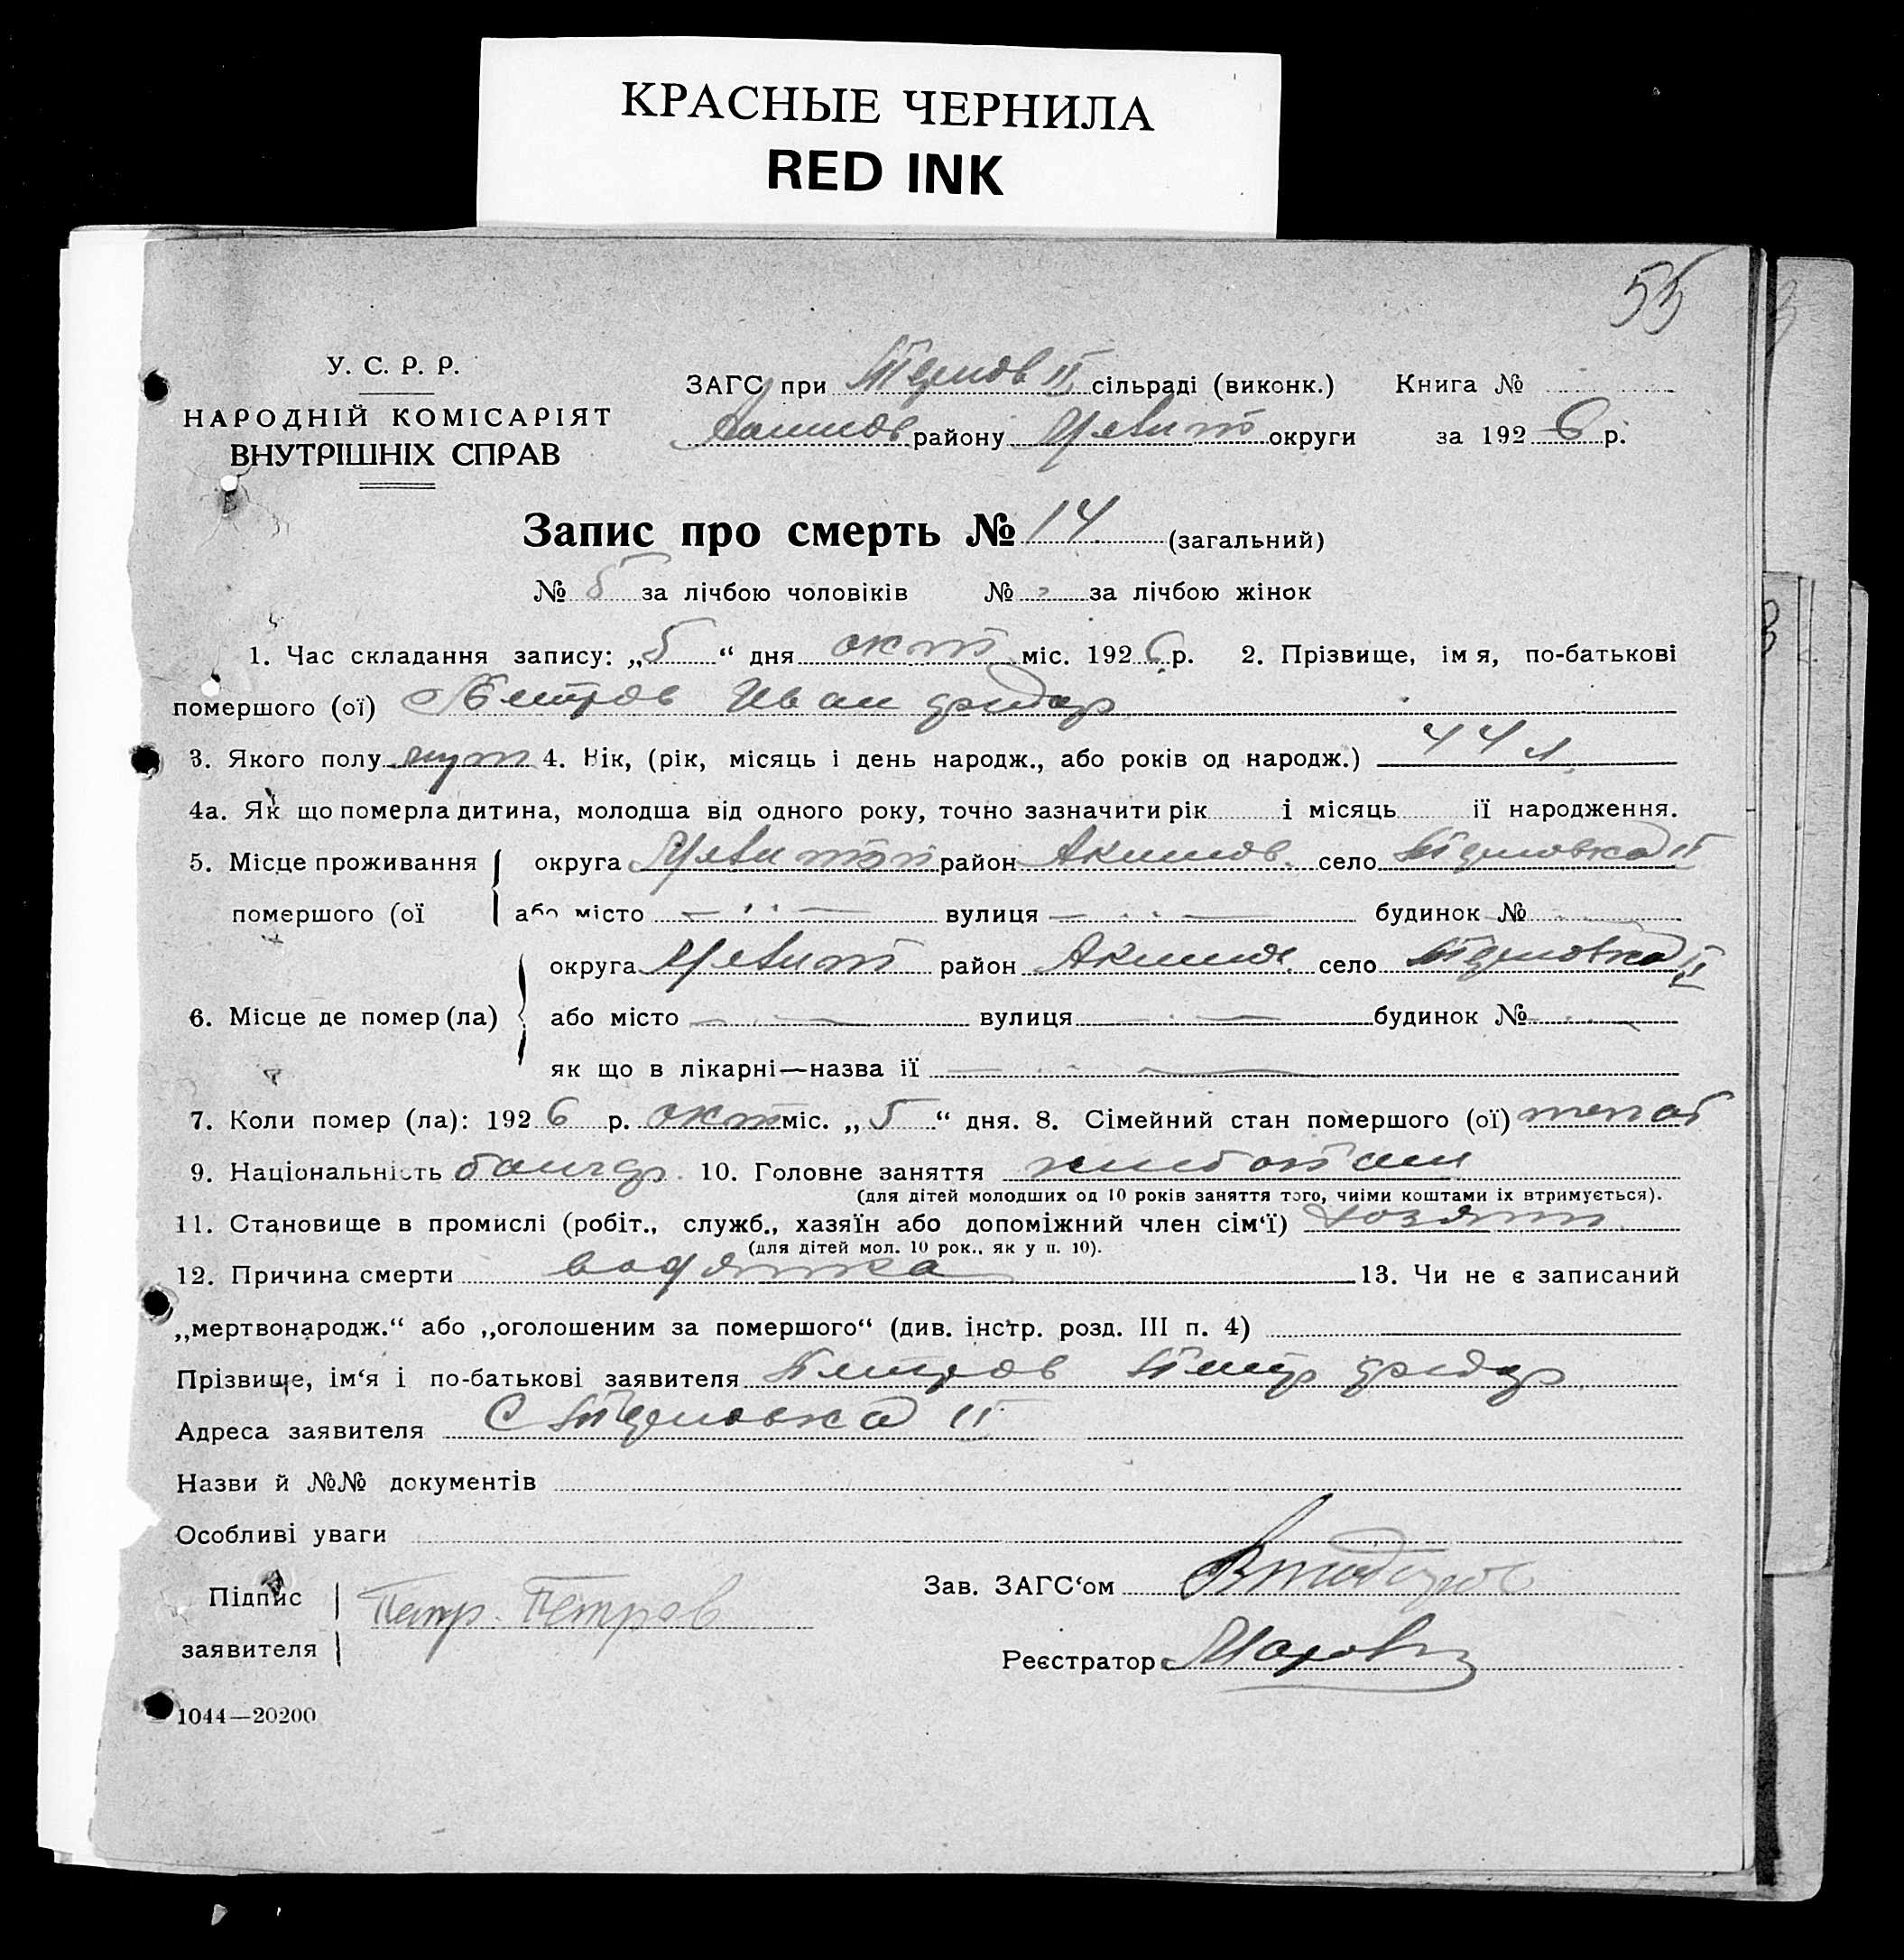 КРАСНЫЕ ЧЕРНИЛА
RED INK
55
У. С. Р. Р.
НАРОДНІЙ КОМІСАРІЯТ
ВНУТРІШНІХ СПРАВ
ЗАГС при II сільраді (виконк.) Книга №
Акимов району Мелит округи за 1926 р.
Запис про смерть № 14 (загальний)
№ 5 за лічбою чоловіків № за лічбою жінок
1. Час складання запису: „5“ дня окт міс. 1926 р. 2. Прізвище, імя, по-батькові
помершого (ої) Петров Иван
3. Якого полу муж 4. Вік, (рік, місяць і день народж., або років од народж.) 44 л.
4а. Як що померла дитина, молодша від одного року, точно зазначити рік і місяць ії народження.
5. Місце проживання округа район Акимов. село II
помершого (ої або місто вулиця будинок №
округа Мелит район Акимов село II
6. Місце де помер (ла) або місто вулиця будинок №
як що в лікарні—назва ії
7. Коли помер (ла): 1926 р. окт міс. „5“ дня. 8. Сімейний стан помершого (ої) женат
9. Національність болгар 10. Головне заняття хлебопаш
(для дітей молодших од 10 років заняття того, чиїми коштами їх втримується).
11. Становище в промислі (робіт., служб., хазяїн або допоміжний член сім‘ї) хозяин
(для дітей мол. 10 рок., як у п. 10).
12. Причина смерти водянка 13. Чи не є записаний
„мертвонародж.“ або „оголошеним за помершого“ (див. інстр. розд. III п. 4)
Прізвище, ім‘я і по-батькові заявителя Петров Петр
Адреса заявителя С II
Назви й №№ документів
Особливі уваги
Підпис Петр. Петров Зав. ЗАГС‘ом
заявителя Реєстратор
1044—20200